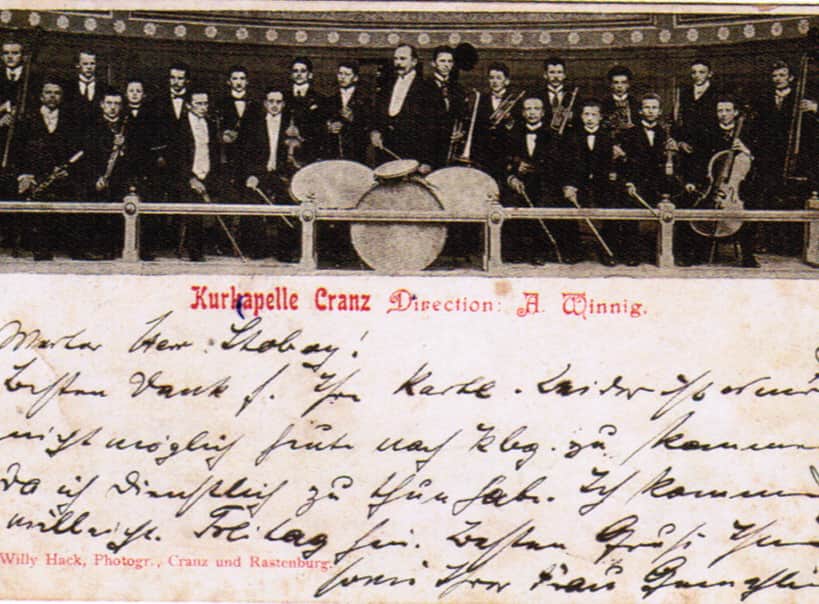 Kurkapelle Cranz Direction: A. Winnig.
Werter Herr Stoboy!
Besten Dank f. Ihre Karte. Leider ist es mir
nicht möglich heute nach Kbg. zu kommen
da ich dienstlich zu thun habe. Ich komme
vielleicht Freitag hin. Besten Gruß Ihnen
Willy Hack, Photogr., Cranz und Rastenburg.
sowie Ihrer Frau